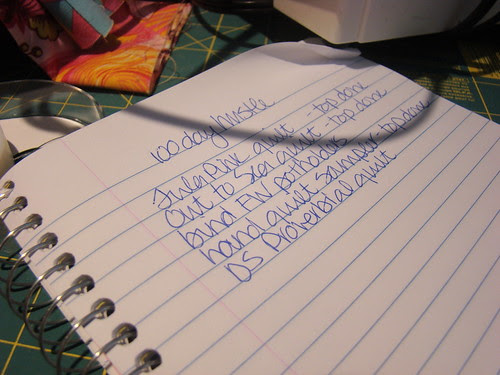 100 day hustle
Pink quilt - top done
Out to Sea quilt - top done
bind FW potholders
hand quilt sampler - top done
DS Proverbial quilt